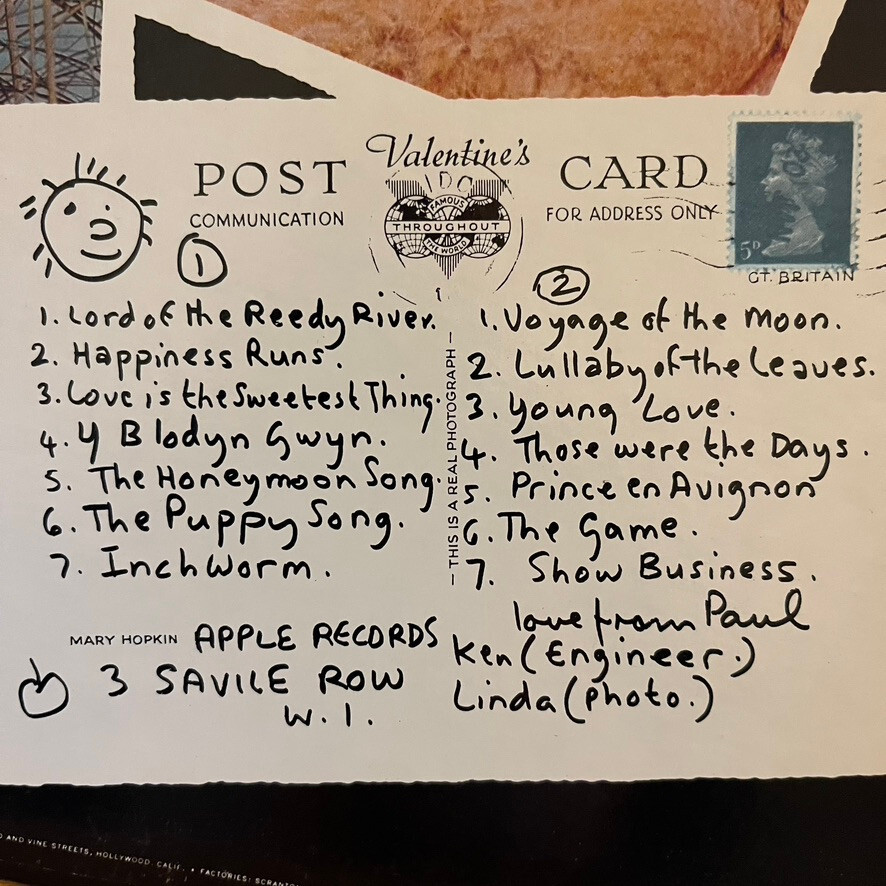 POST Valentine's CARD
COMMUNICATION
FOR ADDRESS ONLY
FAMOUS
THROUGHOUT
THE WORLD
5D
GT. BRITAIN
1
1. Lord of the Reedy River.
2. Happiness Runs.
3. Love is the Sweetest Thing.
4. Y Blodyn Gwyn.
5. The Honeymoon Song.
6. The Puppy Song.
7. Inchworm.
— THIS IS A REAL PHOTOGRAPH —
2
1. Voyage of the Moon.
2. Lullaby of the Leaves.
3. Young Love.
4. Those were the Days.
5. Prince en Avignon
6. The Game.
7. Show Business.
love from Paul
Ken (Engineer.)
Linda (photo.)
MARY HOPKIN APPLE RECORDS
3 SAVILE ROW
W. 1.
AND VINE STREETS, HOLLYWOOD, CALIF. • FACTORIES: SCRANTON